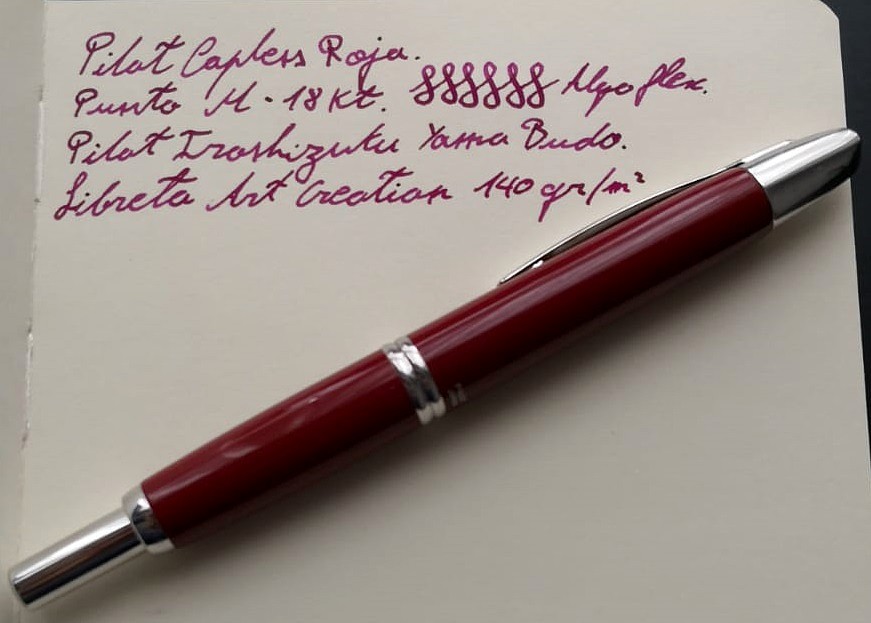 Pilot Capless Roja.
Punto M - 18 Kt. Algo flex.
Pilot Iroshizuku Yama Budo.
Libreta Art Creation 140 gr/m²